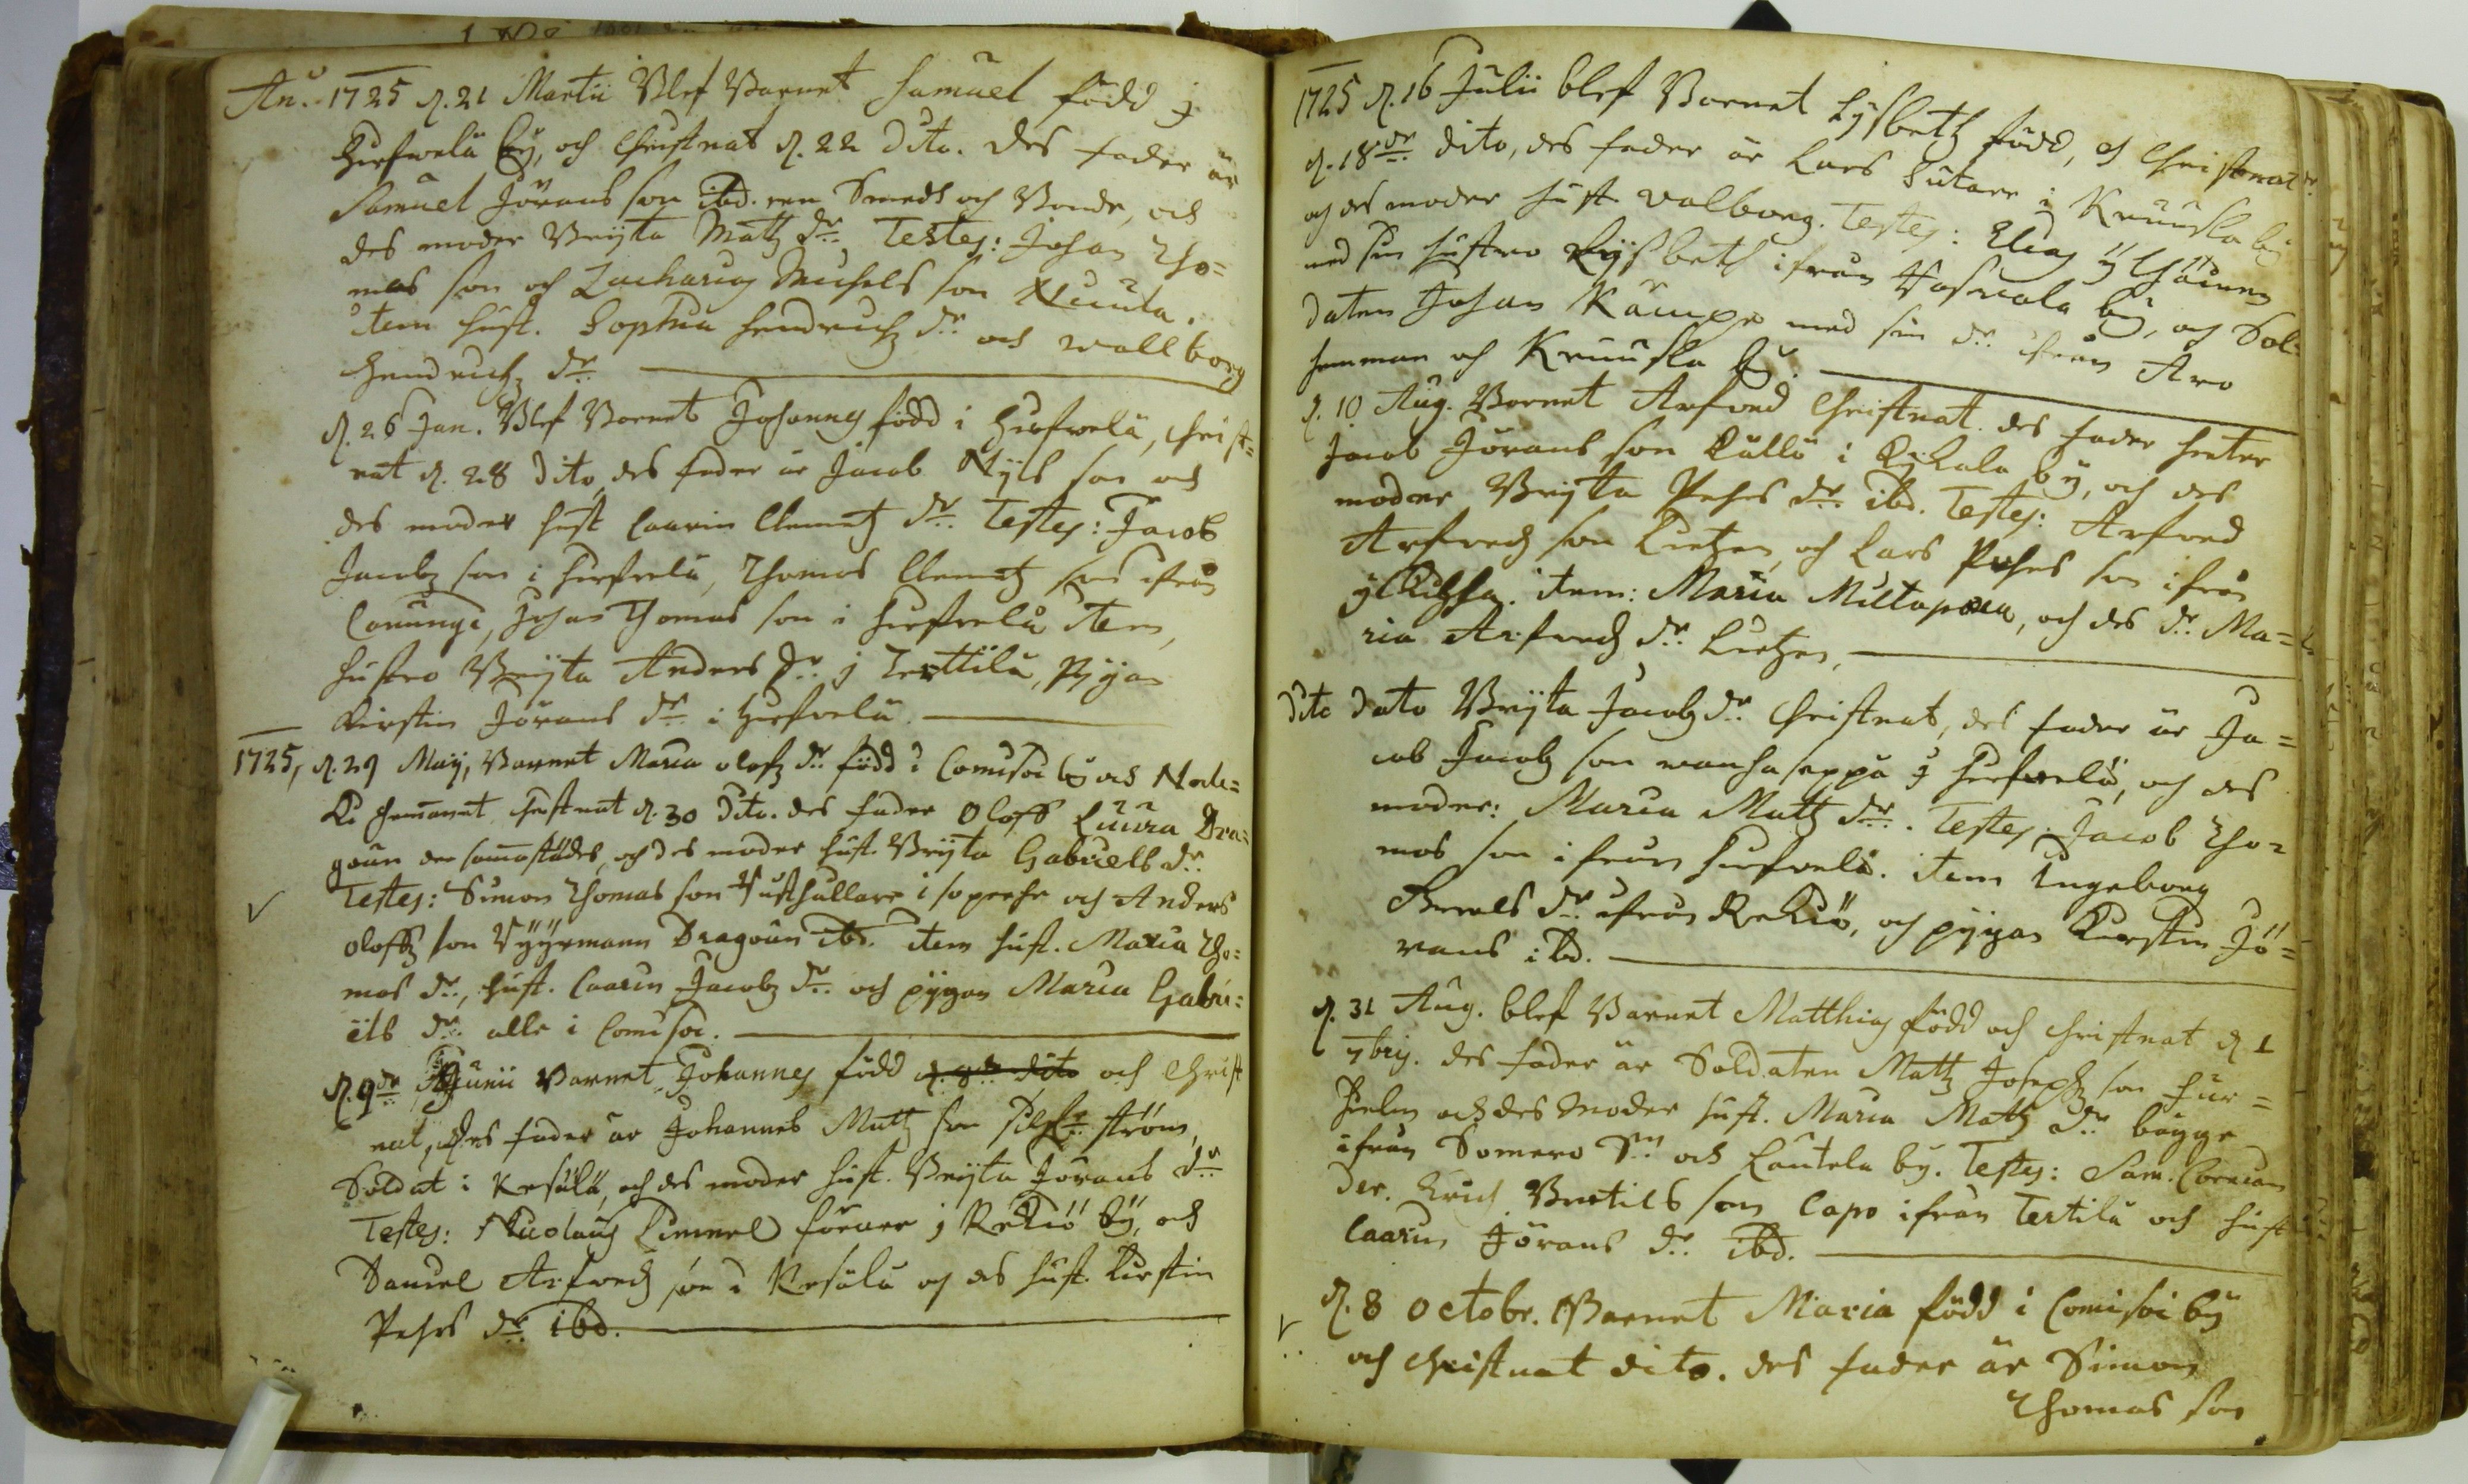 An:o 1725 d. 21 Martii Blef Barnet Samuel född j
Hirfwelä by, och Christnat d. 22 Dito. des fader är
Samuel Jörans son ibd. een Smedh och Bonde, och
des moder Bryta Matz dr. Testes: Johan Tho=
mas son och Zacharias Michels son
item hust. Sophia Hendrichz dr och Wallborg
Hendrichz dr.
d. 26 Jan. Blef Barnet Johannes född i Hirfwelä, Christ=
nat d. 28 Dito, des fader är Jacob Nijls son och
des moder hust Caarin Clemetz dr. Testes: Jacob
Jacobz son i Hirfwelä, Thomas Clemetz son ifrån
Cauungi, Johan Thomas son i Hirfwelä item,
hustro Bryta Anders dr j Terttilä, Pijgan
Kirstin Jörans dr i Hirfwelä.
1725, d. 29 Maij, Barnet Maria olofz dr född i Comisoi by och
hemanet Christnat d. 30 Dito. des fader Oloff Liura Dra=
goun der sammastädes, och des moder hust. Bryta Gabriells dr.
Testes: Simon Thomas son Rusthållare i soperhe och Anders
oloffz son Nyÿrmann Dragoun ibd. item hust. Maria Tho=
mas dr, hust. Caarin Jacobz dr och pygan Maria Gabri=
els dr. alle i Comisoi.
d. 9de Junii Barnet Johannes född d. 8de dito och Christ
nat, des fader är Johannes Matz son Silfr. ström,
Soldat i Kesälä, och des moder hust. Bryta Jörans dr
Testes: Nicolaus Limnel förare j Rekiö by, och
Daniel Arfwedz son i Kesälä och des hust. Kirstin
Pehrs dr. ibd.
1725 d. 16 Julii blef Barnet Lysbetz född, och Christnat
d. 18de dito, des fader är Lars Sutare i Kruusla by
och des moder hust Valborg. Testes: Elias
med sin hustro Lysbeth ifrån by, och Sol=
daten Johan Kämpe med sin dr. ifrån Aro
hemman och Kruusla by.
d. 10 Aug. Barnet Arfved Christnat. des fader heeter
Jacob Jörans son Kallä i by, och des
moder Bryta Pehrs dr. ibd. Testes: Arfved
Arfvedz son Lietzen, och Lars Pehrs son ifrån
item: Maria Miltapaea, och des dr. Ma=
ria Arfvedz dr. Lietzen,
Dito Dato Bryta Jacobz dr Christnat, des fader är Ja=
cob Jacobz son wanhaseppä j Hirfwelä, och des
moder: Maria Matz dr. Testes: Jacob Tho=
mas son ifrån Hirfwelä. item Ingeborg
dr. ifrån Rekiö, och pygan Kirstin Jö=
rans ibd.
d. 31 Aug. blef Barnet Matthias född och Christnat d 1
7bris. des fader är Soldaten Matz Josephz son Fur=
hielm och des moder hust. Maria Matz dr. bägge
ifrån Somero Sn och Lautela by. Testes: Sam. Corneau
der. Erich Bertils son Capo ifrån Tertilä och hust
Caarin Jörans dr. ibd.
d. 8 octobr. Barnet Maria född i Comisoi by
och Christnat dito. des fader är Simon
Thomas son